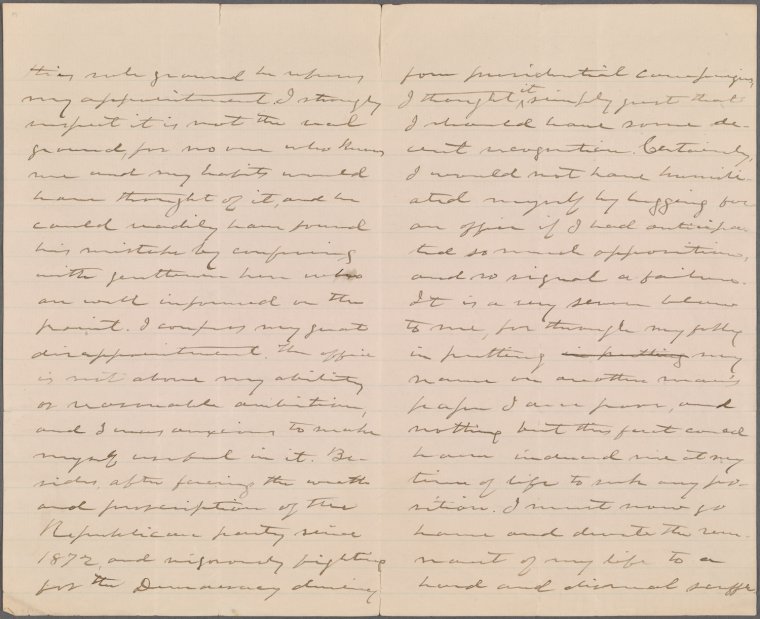 this sole ground he refuses
my appointment. I strongly
suspect it is not the real
ground, for no one who knows
me and my habits would
have thought of it, and he
could readily have found
his mistake by conferring
with gentlemen here who
are well informed on the
point. I confess my great
disappointment. The office
is not above my ability
or reasonable ambition,
and I was anxious to make
myself useful in it. Be-
sides, after facing the wrath
and proscription of the
Republican party since
1872, and vigorously fighting
for the Democracy during
four presidential campaigns,
I thought it simply just that
I should have some de-
cent recognition. Certainly,
I would not have humili-
ated myself by begging for
an office if I had anticipa-
ted so much opposition,
and so signal a failure.
It is a very severe blow
to me, for through my folly
in putting in putting my
name on another man's
paper I am poor, and
nothing but this fact could
have induced me at my
time of life to seek any po-
sition. I must now go
home and devote the rem-
nant of my life to a
hard and dismal scuffle